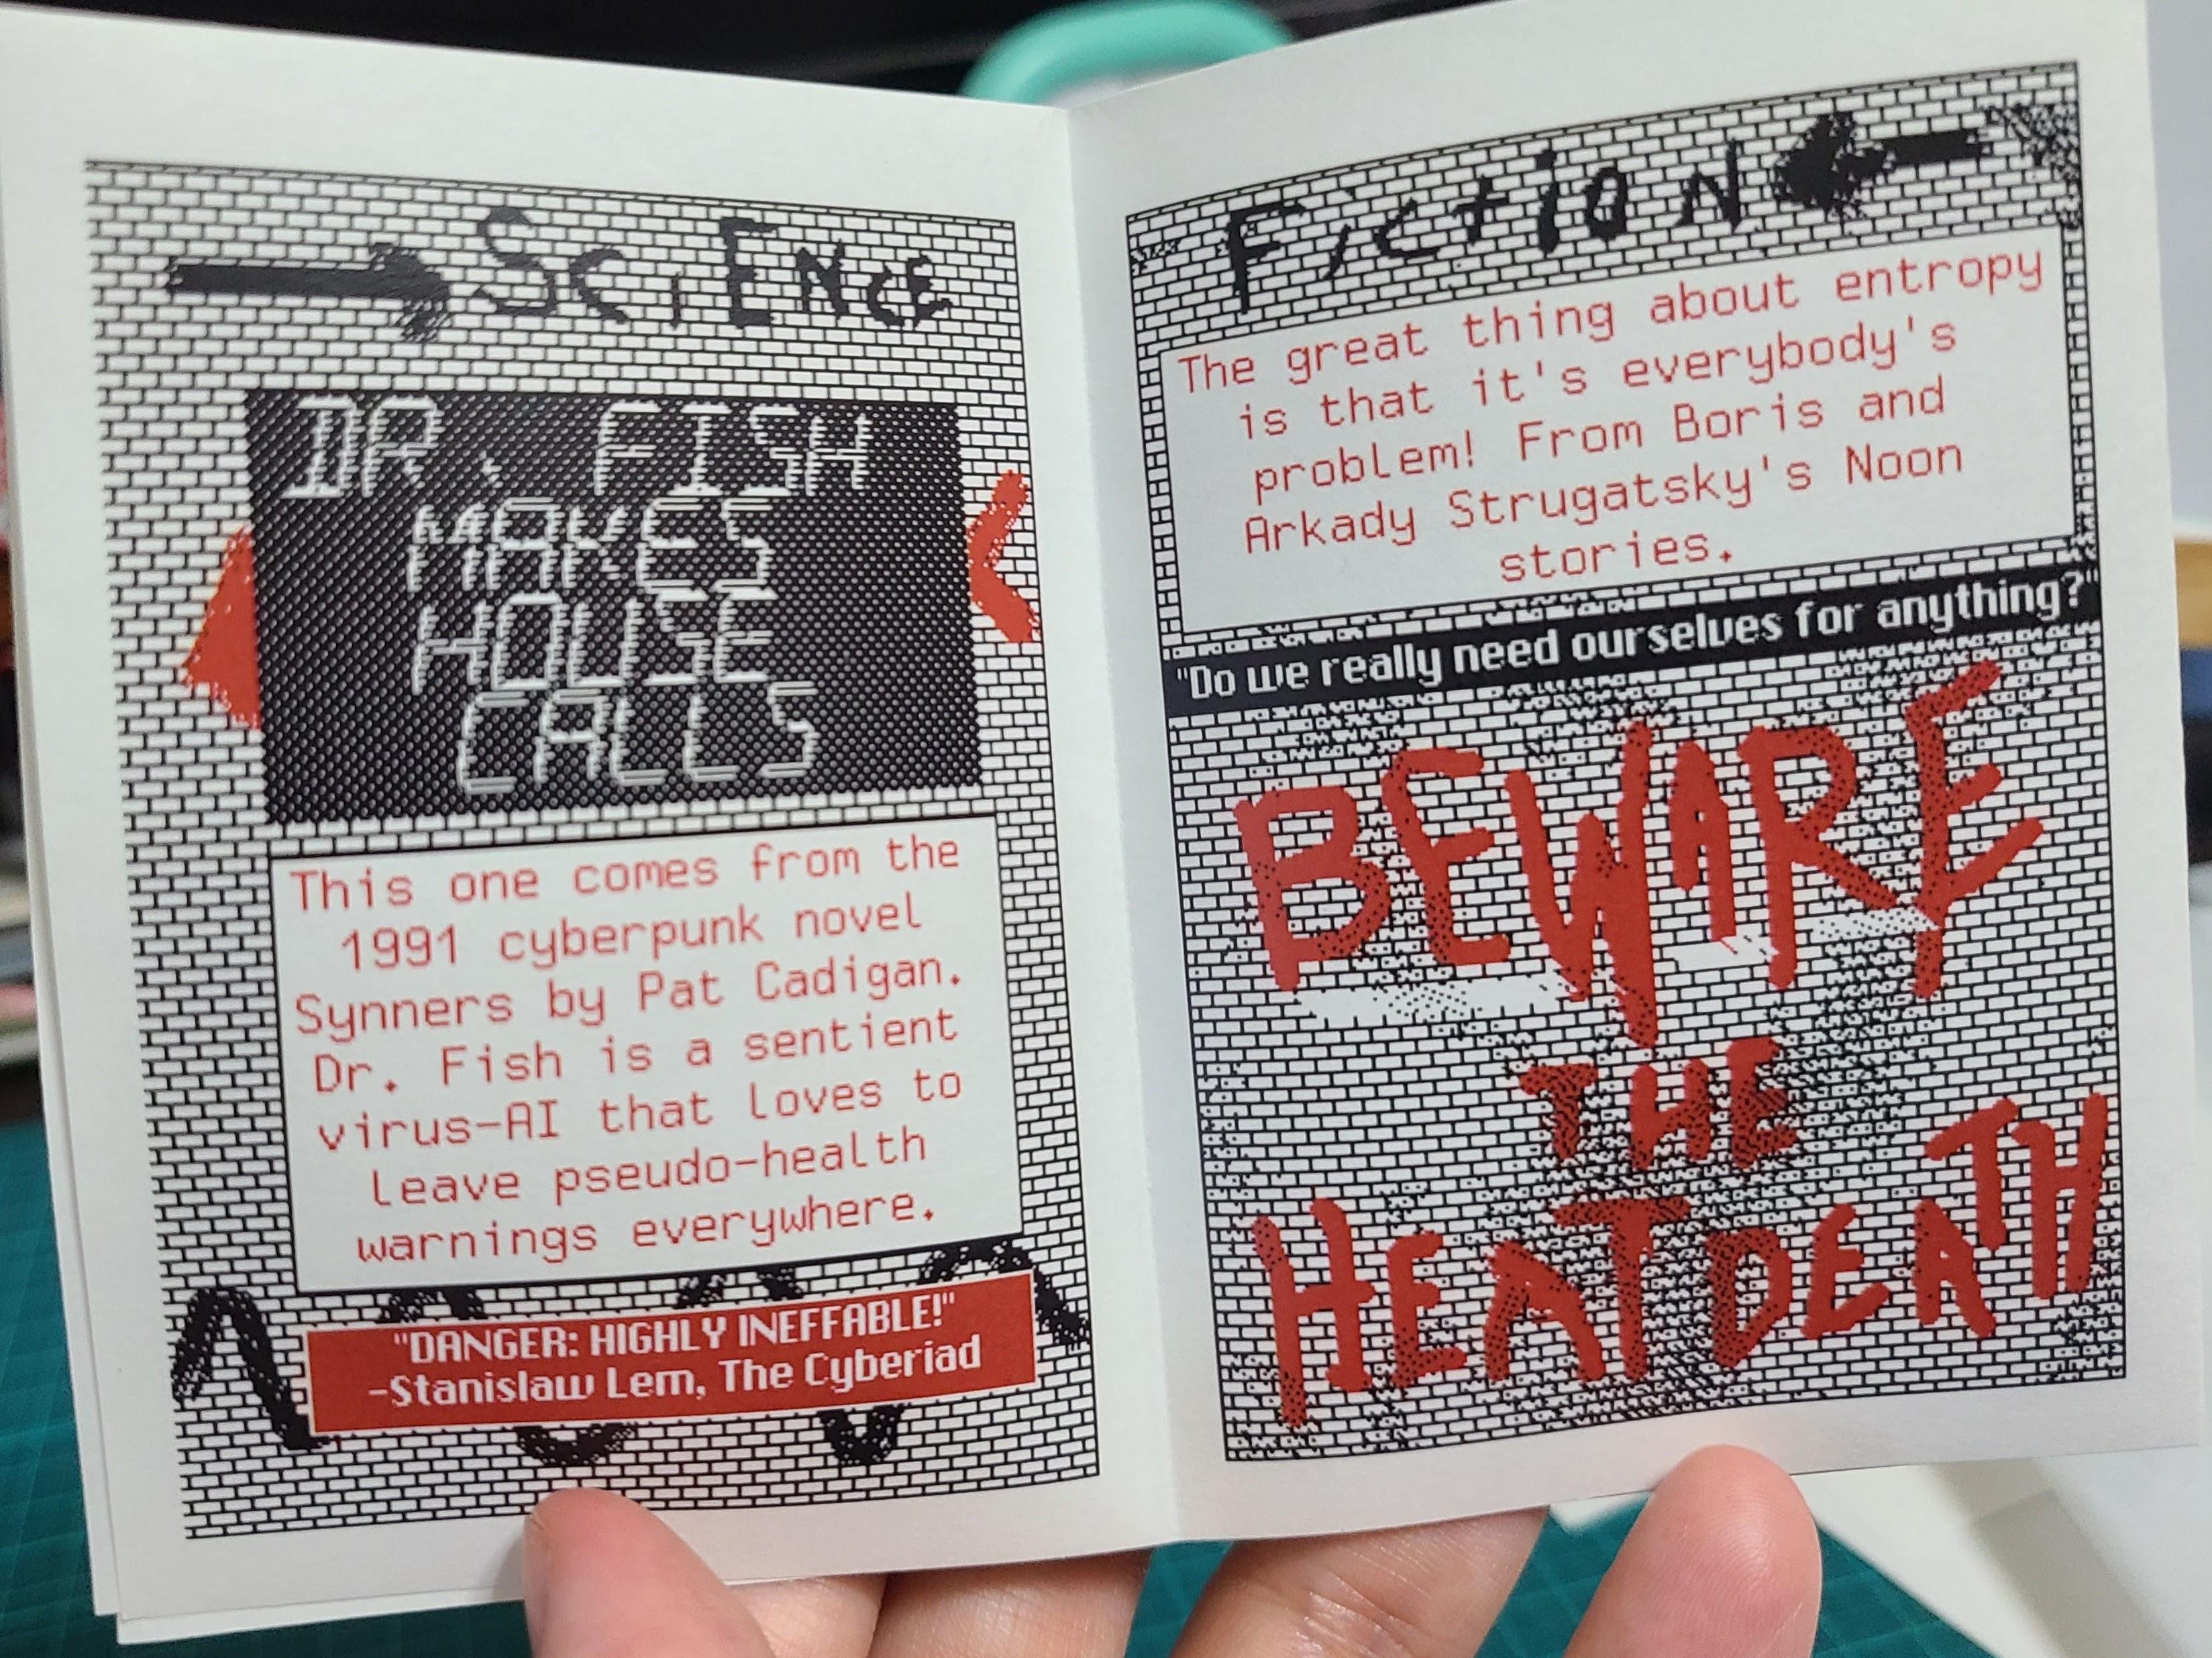 SCiENcE
DR. FISH
MAKES
HOUSE
CALLS
This one comes from the
1991 cyberpunk novel
Synners by Pat Cadigan.
Dr. Fish is a sentient
virus-AI that loves to
leave pseudo-health
warnings everywhere.
"DANGER: HIGHLY INEFFABLE!"
-Stanislaw Lem, The Cyberiad
FictioN
The great thing about entropy
is that it's everybody's
problem! From Boris and
Arkady Strugatsky's Noon
stories.
"Do we really need ourselves for anything?"
BEWARE
THE
HEAT DEATH